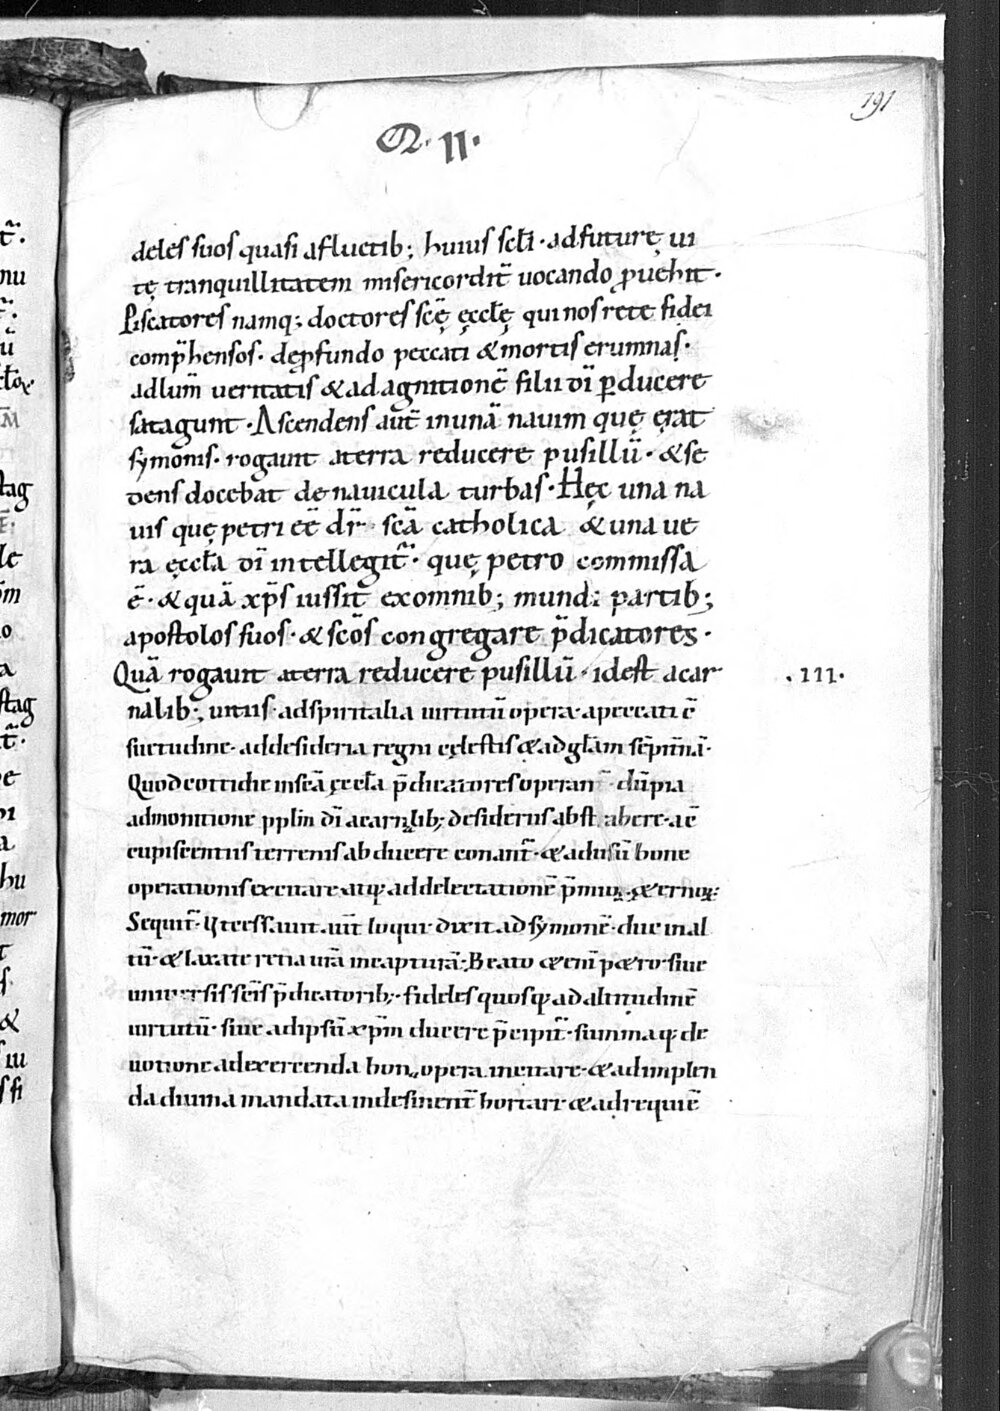 191
Q. II.
t̄.
nu
ū
M̄
tag
le
o
a
stag
t̄.
pe
a
hu
mor
&
iu
si
deles suos quasi a fluctib; huius sc̄li · ad futurę ui
tę tranquillitatem misericordit̄ uocando ꝓuehit ·
Piscatores namq; doctores scę̄ ęccl̄ę qui nos rete fidei
comp̄hensos · de ꝓfundo peccati & mortis erumnas ·
ad lum̄ ueritatis & ad agnitionē filii dī ꝑducere
satagunt · Ascendens aut̄ in unā nauim quę ęrat
symonis · rogauit a terra reducere pusillū · & se
dens docebat de nauicula turbas · Hęc una na
uis quę petri eē dr̄ · scā catholica & una ue
ra ęccl̄a dī intellegit̄ · quę petro commissa
ē · & quā xp̄s iussit ex omnib; mundi partib;
apostolos suos · & scōs congregare p̄dicatores ·
Quā rogauit a terra reducere pusillū · id est a car · III ·
nalib; uitiis · ad spiritalia uirtutū opera · a peccati c̄
suetudine · ad desideria regni cęlestis & ad gl̄am sēpit̄nā ·
Quod cottidie in scā ęccl̄a p̄dicatores operant̄ · dū pia
admonitione pplm̄ dī a carnalib; desideriis abstrahere · a c̄
cupiscentiis terrenis abducere conant̄ · & ad usū bone
operationis excitare atq; ad delectationē p̄mioꝝ · &ernoꝝ ·
Sequit̄ · Ut cessauit aut̄ loqui · dixit ad symonē · duc in al
tū · & laxate retia ur̄a in capturā; Beato &eni p&ro · siue
uniuersis scīs p̄dicatorib; · fideles quosq; ad altitudinē
uirtutū · siue ad ipsū xp̄m ducere p̄cipit̄ · summaq; de
uotione ad exercenda bona opera incitare · & ad implen
da diuina mandata indesinent̄ hortari · & ad requiē